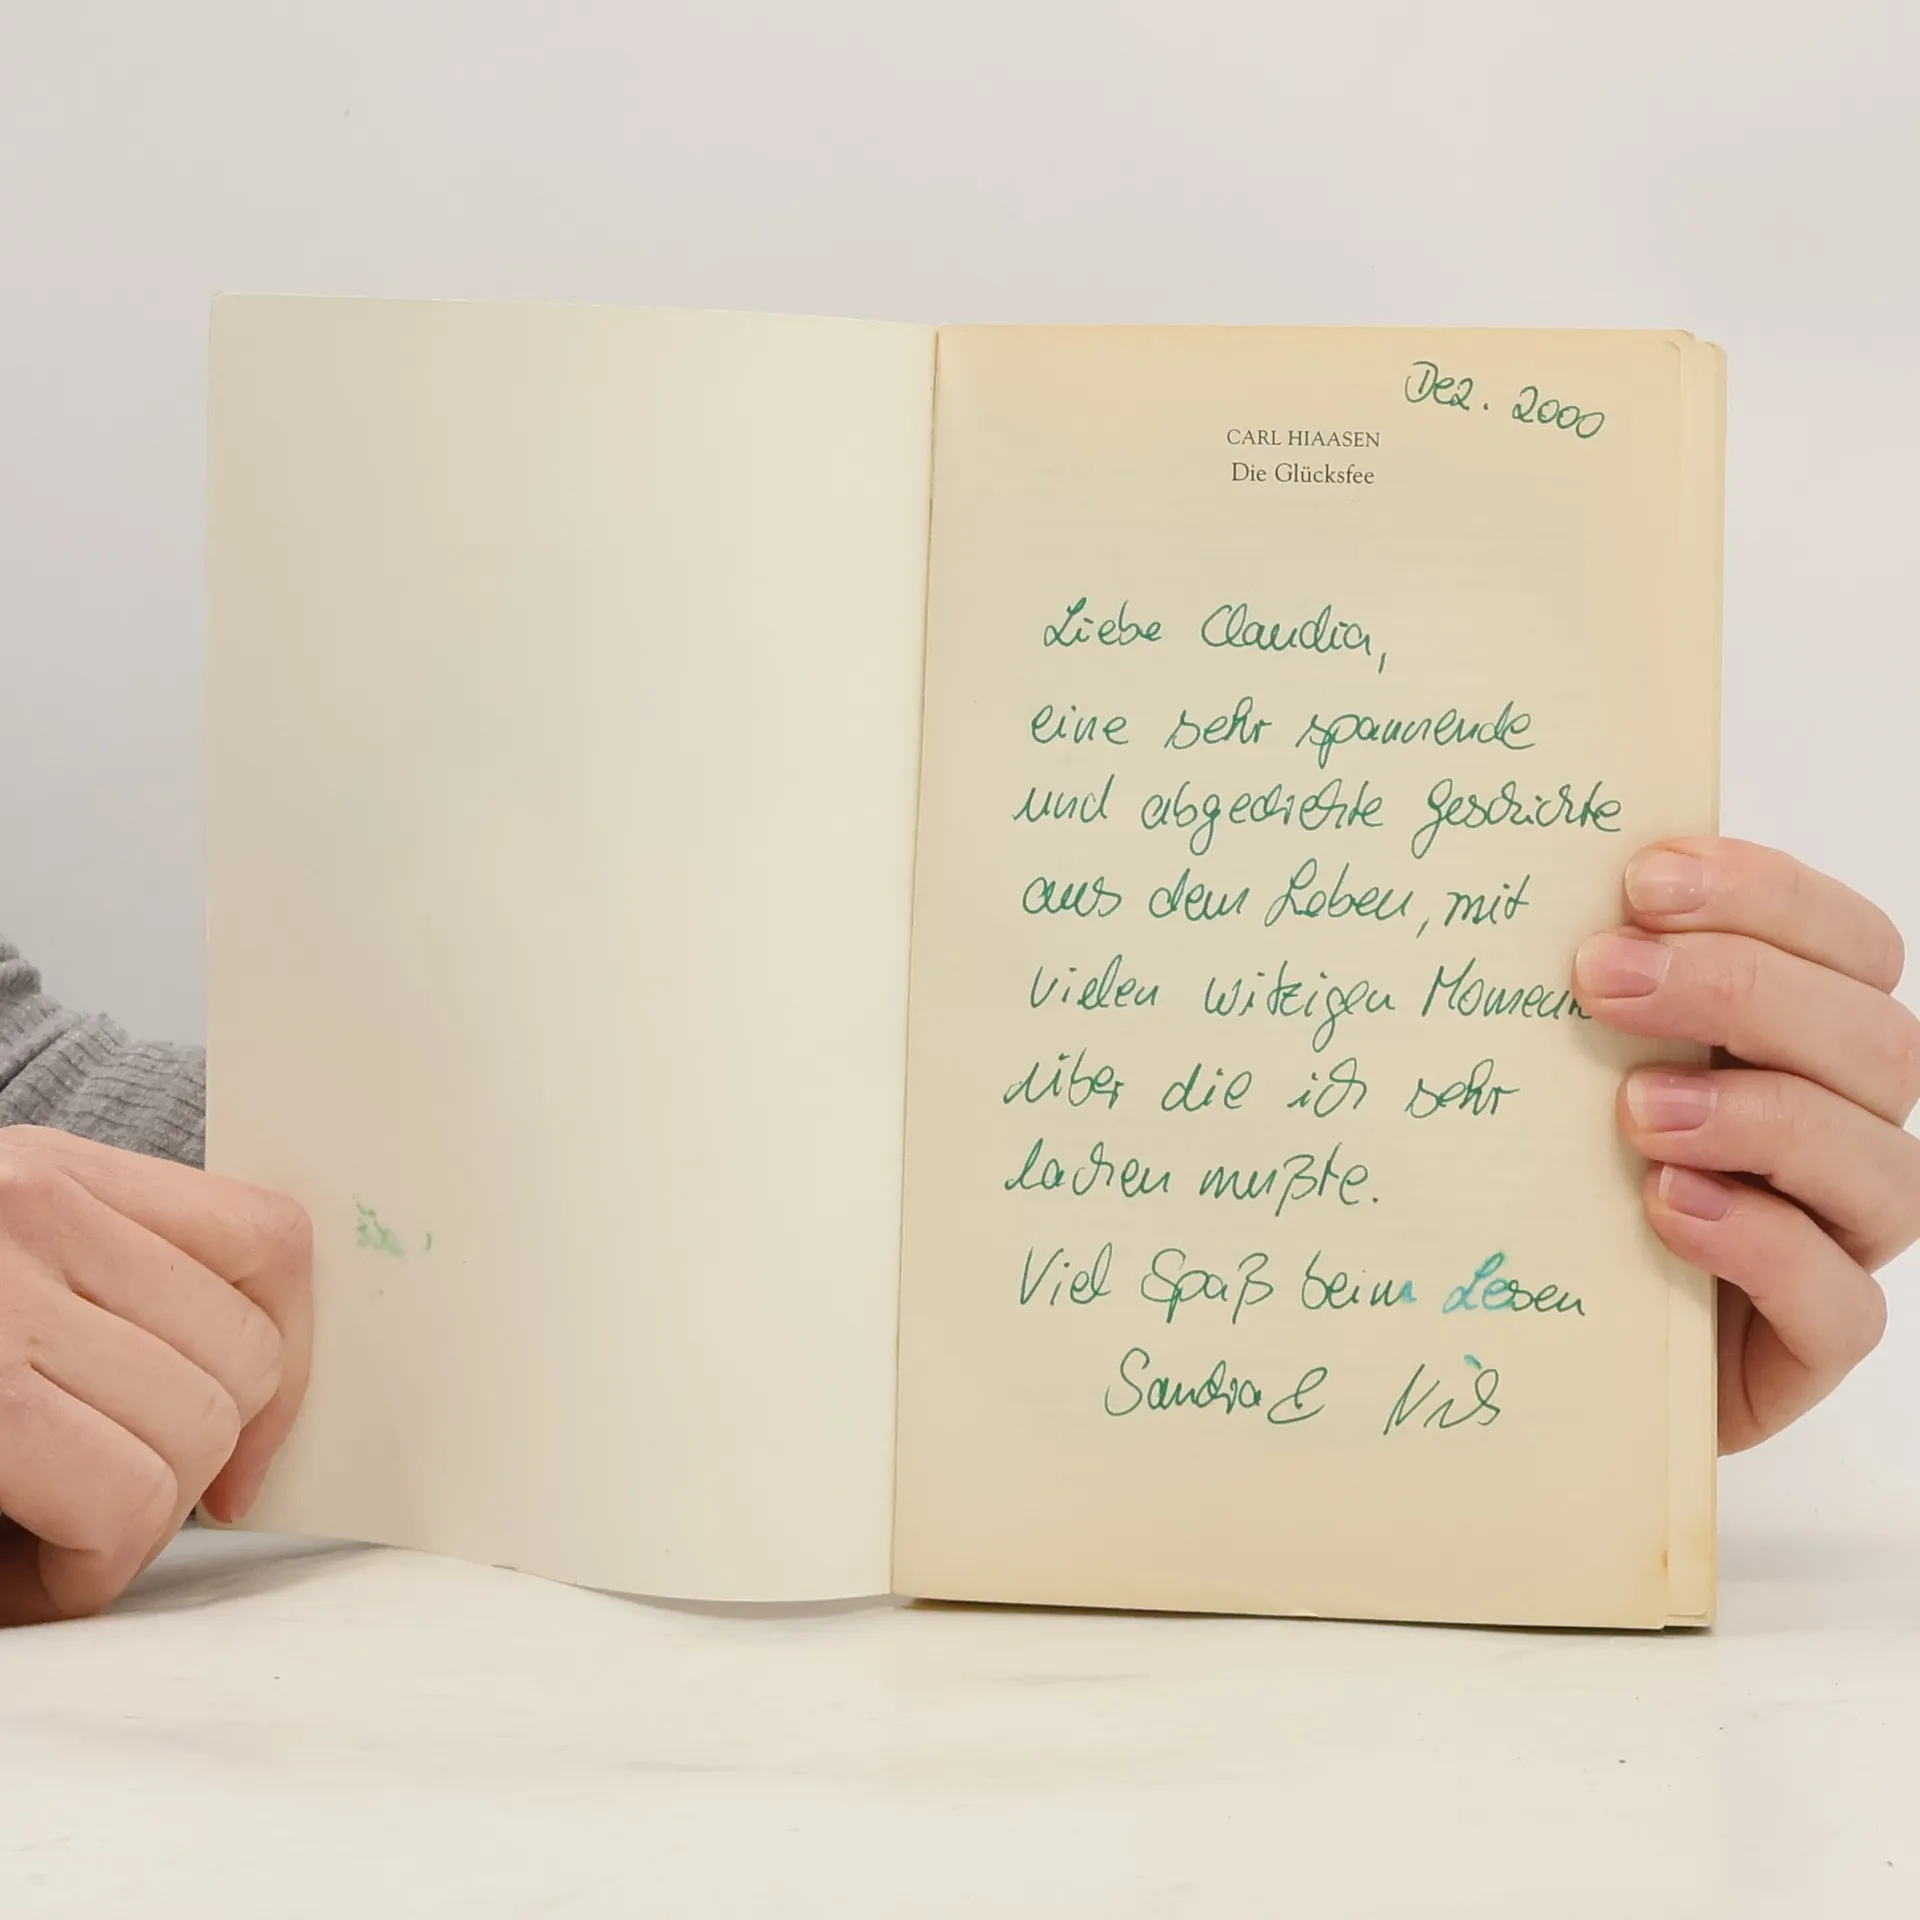 Dez. 2000
CARL HIAASEN
Die Glücksfee
Liebe Claudia,
eine sehr spannende
und abgedrehte Geschichte
aus dem Leben, mit
vielen witzigen
über die ich sehr
lachen mußte.
Viel Spaß beim Lesen
Sandra & Nils